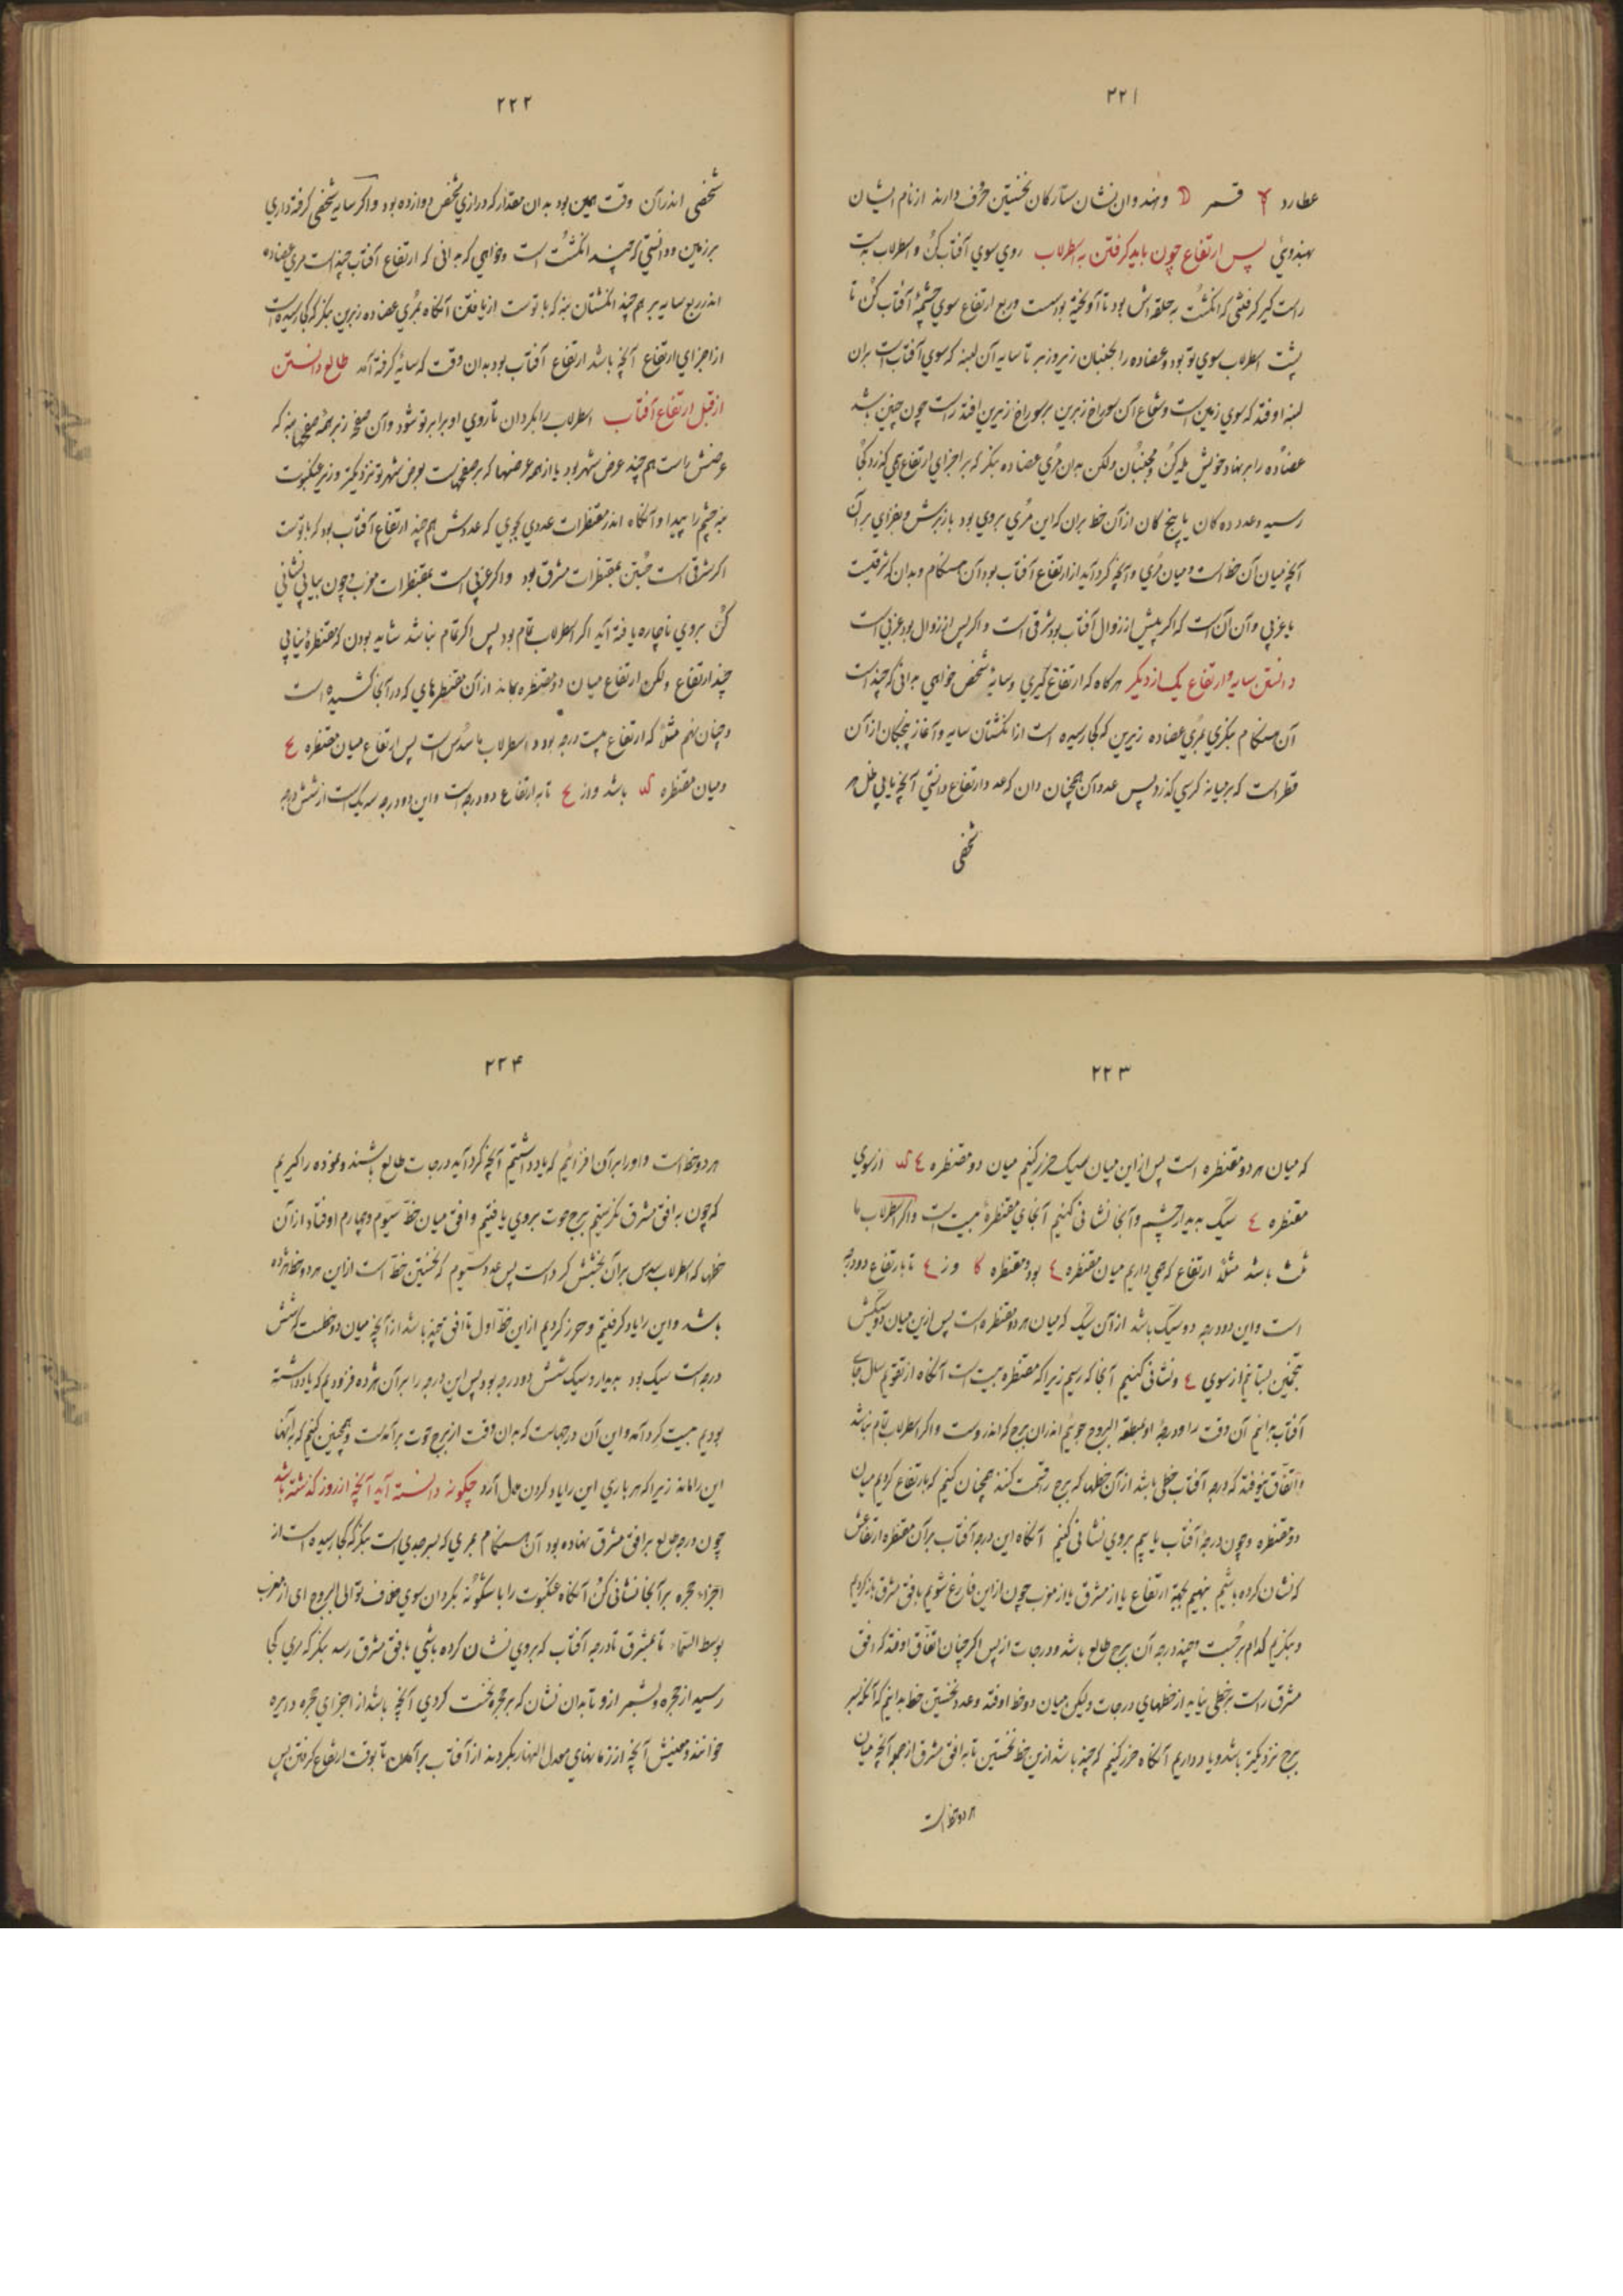 ۲۲۱
عطارد قمر D وهندوان نشان ستارکان نخستین حرف دارند از نام ایشان
بهندوئی پس ارتفاع چون باید کرفتن به اسطرلاب روی سوی آفتاب کن و اسطرلاب بدست
راست کیر کرفتنی که انکشت بحلقه اش بود تا آویخته بود دست وربع ارتفاع سوی چشمهٔ آفتاب کن تا
پشت اسطرلاب سوی تو بود وعضاده را بجنبان زیر وزبر تا سایه آن لبنه که سوی آفتاب است بران
لبنه اوفتد که سوی زمین است وشعاع آن سوراخ زبرین برسوراخ زیرین افتد راست چون چنین باشد
عضاده را برنهاد خویش یله کن ومجنبان ولکن بدان مری عضاده بنکر که بر اجزای ارتفاع همی کذرد کجا
رسید وعدد ده کان یا پنج کان ازآن خط بران که این مری بروی بود یا زبرش وبفزای برآن
آنچه میان آن خط است ومیان مری وآنچه کرد آید از ارتفاع آفتاب بود آن هنکام وبدان که شرقیست
یا غربی وآن آن است که اکر پیش از زوال آفتاب بود شرقی است واکر پس از زوال بود غربی است
دانستن سایه وارتفاع یک از دیکر هرکاه که ارتفاع کیری وسایهٔ شخص خواهی بدانی که چند است
آن هنکام بنکری بمری عضاده زیرین که کجا رسیده است از انکشتان سایه وآغاز پنجکان ازآن
قطر است که برمیانه کرسی کذرد پس عدد آن همچنان دان که عدد ارتفاع دانستی آنچه یابی ظل هر
شخصی
۲۲۲
شخصی اندرآن وقت همین بود بدان مقدار که درازی شخص دوازده بود واکر سایه شخصی کرفته داری
برزمین ودانستی که چند انکشت است وخواهی که بدانی که ارتفاع آفتاب چند است مری عضاده
اندر ربع سایه بر هم چند انکشتان بنه که با توست از یافتن آنکاه بمری عضاده زبرین بنکر که کجا رسیده است
از اجزای ارتفاع آنچه باشد ارتفاع آفتاب بود بدان وقت که سایهٔ کرفته آمد طالع دانستن
از قبل ارتفاع آفتاب اسطرلاب را بکردان تا روی او برابر تو شود وآن صفحه زبر همهٔ صفحها بنه که
عرضش راست هم چند عرض شهر بود یا از همه عرضها که برصفحهاست بعرض شهر تو نزدیکتر وزیر عنکبوت
بنه چشم را پیدا وآنکاه اندر مقنطرات عددی بجوی که عددش هم چند ارتفاع آفتاب بود که با توست
اکر شرقی است جستن بمقنطرات مشرق بود واکر غربی است بمقنطرات مغرب وچون بیابی نشانی
کن بروی ناچاره یافته آید اکر اسطرلاب تمام بود پس اکر تمام نباشد شاید بودن که مقنطرهٔ نیابی
چند ارتفاع ولکن ارتفاع میان دو مقنطره بماند ازآن مقنطرهای که درآنجا کشیده است
وچنان نهم مثلاً که ارتفاع بیست درجه بود واسطرلاب ما سدس است پس ارتفاع میان مقنطره یح
ومیان مقنطره کد باشد واز یح تا به ارتفاع دو درجه است واین دو درجه سه یک است از شش درجه
۲۲۳
که میان هر دو مقنطره است پس از این میان سیک حزر کنیم میان دو مقنطره یح کد از سوی
مقنطره یح سیک به دیدار چشم وآنجا نشانی کنیم آنجای مقنطرهٔ بیست است واکر اسطرلاب ما
ثلث باشد مثلاً ارتفاع که همی داریم میان مقنطره یح بود ومقنطره کا واز یح تا بارتفاع دو درجه
است واین دو درجه دو سیک باشد ازآن سیک که میان هر دو مقنطره است پس ازین میان دو سیکش
بتخمین بستانیم از سوی یح ونشانی کنیم آنجا که رسیم زیرا که مقنطره بیست است آنکاه از تقویم سال جای
آفتاب بدانیم آن وقت را ودرجهٔ او بمنطقة البروج جوییم اندران برج که اندروست واکر اسطرلاب تمام نباشد
واتفاق نیوفتد که درجه آفتاب خطی باشد ازآن خطها که برج را قسمت کنند همچنان کنیم که بارتفاع کردیم میان
دو مقنطره وچون درجهٔ آفتاب یابیم بروی نشانی کنیم آنکاه این درجه آفتاب برآن مقنطره ارتفاعش
که نشان کرده باشیم بنهیم بجهة ارتفاع یا از مشرق یا از مغرب چون ازاین فارغ شویم بافق مشرق باز کردیم
وبنکریم کدام برجست وچند درجه آن برج طالع باشد ودرجات ازپس اکر چنان اتفاق اوفتد که افق
مشرق راست برخطی نیاید از خطهای درجات ولیکن میان دو خط اوفتد وعدد نخستین خط بدانیم که آنکه بسر
برج نزدیکتر باشد ویاد داریم آنکاه حزر کنیم که چند باشد ازین خط نخستین تا به افق مشرق از جمله آنچه میان
هر دو خط است
۲۲۴
هر دو خط است واورا برآن افزائیم که یاد داشتیم آنچه کرد آید درجات طالع باشند ونموده را کیریم
که چون به افق مشرق نکرستیم برج حوت بروی یافتیم وافق میان خط سیوم وچهارم اوفتاد ازآن
خطها که اسطرلاب سدس برآن بخشش کرد است پس عدد سیوم که نخستین خط است ازاین هر دو خط هژده
باشد واین را یاد کرفتیم وحزر کردیم ازاین خط اول تا افق چند باشد از آنچه میان دو خطست که شش
درجه است سیک بود بدیدار وسیک شش دو درجه بود پس این درجه را برآن هژده فزودیم که یاد داشته
بودیم بیست کرد آمد واین آن درجهاست که بدان وقت از برج حوت برآمدست وهمچنین کنیم که بدآنها
این را ماند زیرا که هر باری این را یاد کردن ملال آرد چکونه دانسته آید آنچه از روز کذشته باشد
چون درجه طالع برافق مشرق نهاده بود آن هنکام بمری که بسر جدی است بنکر که کجا رسیده است از
اجزاء حجره برآنجا نشانی کن آنکاه عنکبوت را باشکونه بکردان سوی خلاف توالی البروج ای از مغرب
بوسط السماء تا بمشرق تا درجه آفتاب که بروی نشان کرده باشی بافق مشرق رسد بنکر که مری کجا
رسید از حجره وبشمر ازو تا بدان نشان که برحجره نخست کردی آنچه باشد از اجزای حجره دایره
خوانند ومعنیش آنچه از زمانهای معدل النهار بکردیده از آفتاب برآمدن تا بوقت ارتفاع کرفتن پس